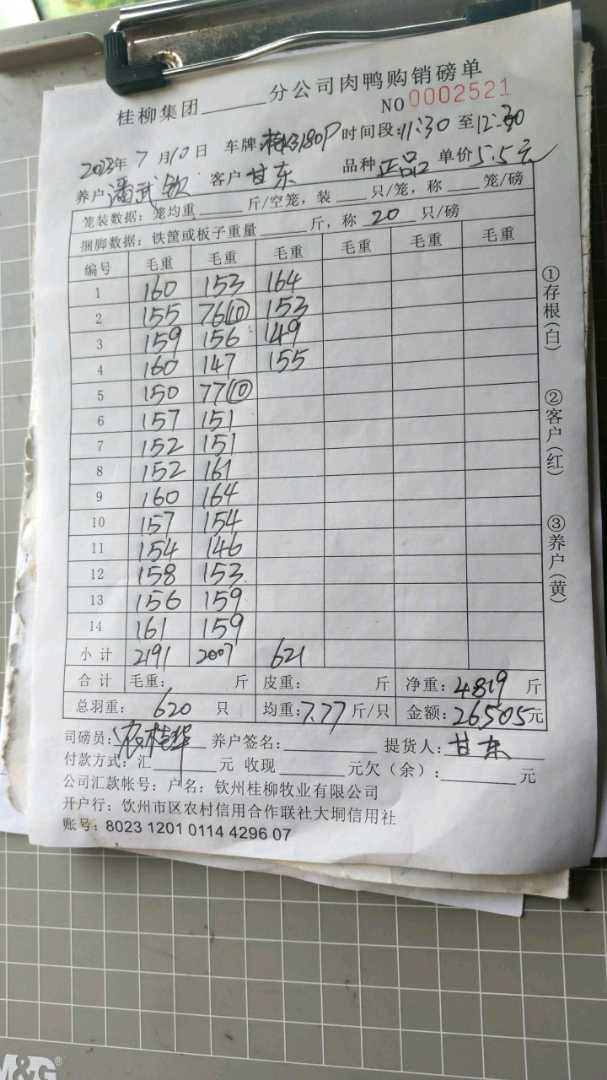 桂柳集团______分公司肉鸭购销磅单
NO 0002521
2023年 7 月 10 日 车牌 时间段: 11:30 至 12:30
养户 潘武钦 客户 甘东 品种 正品 单价 5.5元
笼装数据: 笼均重____斤/空笼, 装____只/笼, 称____笼/磅
捆脚数据: 铁筐或板子重量______斤, 称 20 只/磅
编号 毛重 毛重 毛重 毛重 毛重 毛重
1 160 153 164
2 155 76(10) 153
3 159 156 149
4 160 147 155
5 150 77(10)
6 157 151
7 152 151
8 152 161
9 160 164
10 157 154
11 154 146
12 158 153
13 156 159
14 161 159
小计 2191 2007 621
合计 毛重: 斤 皮重: 斤 净重: 4819 斤
总羽重: 620 只 均重: 7.77 斤/只 金额: 26505元
司磅员: 农桂华 养户签名: 提货人: 甘东
付款方式: 汇______元 收现______元欠(余): ______元
公司汇款帐号: 户名: 钦州桂柳牧业有限公司
开户行: 钦州市区农村信用合作联社大垌信用社
账号: 8023 1201 0114 4296 07
①存根(白)
②客户(红)
③养户(黄)
M&G®